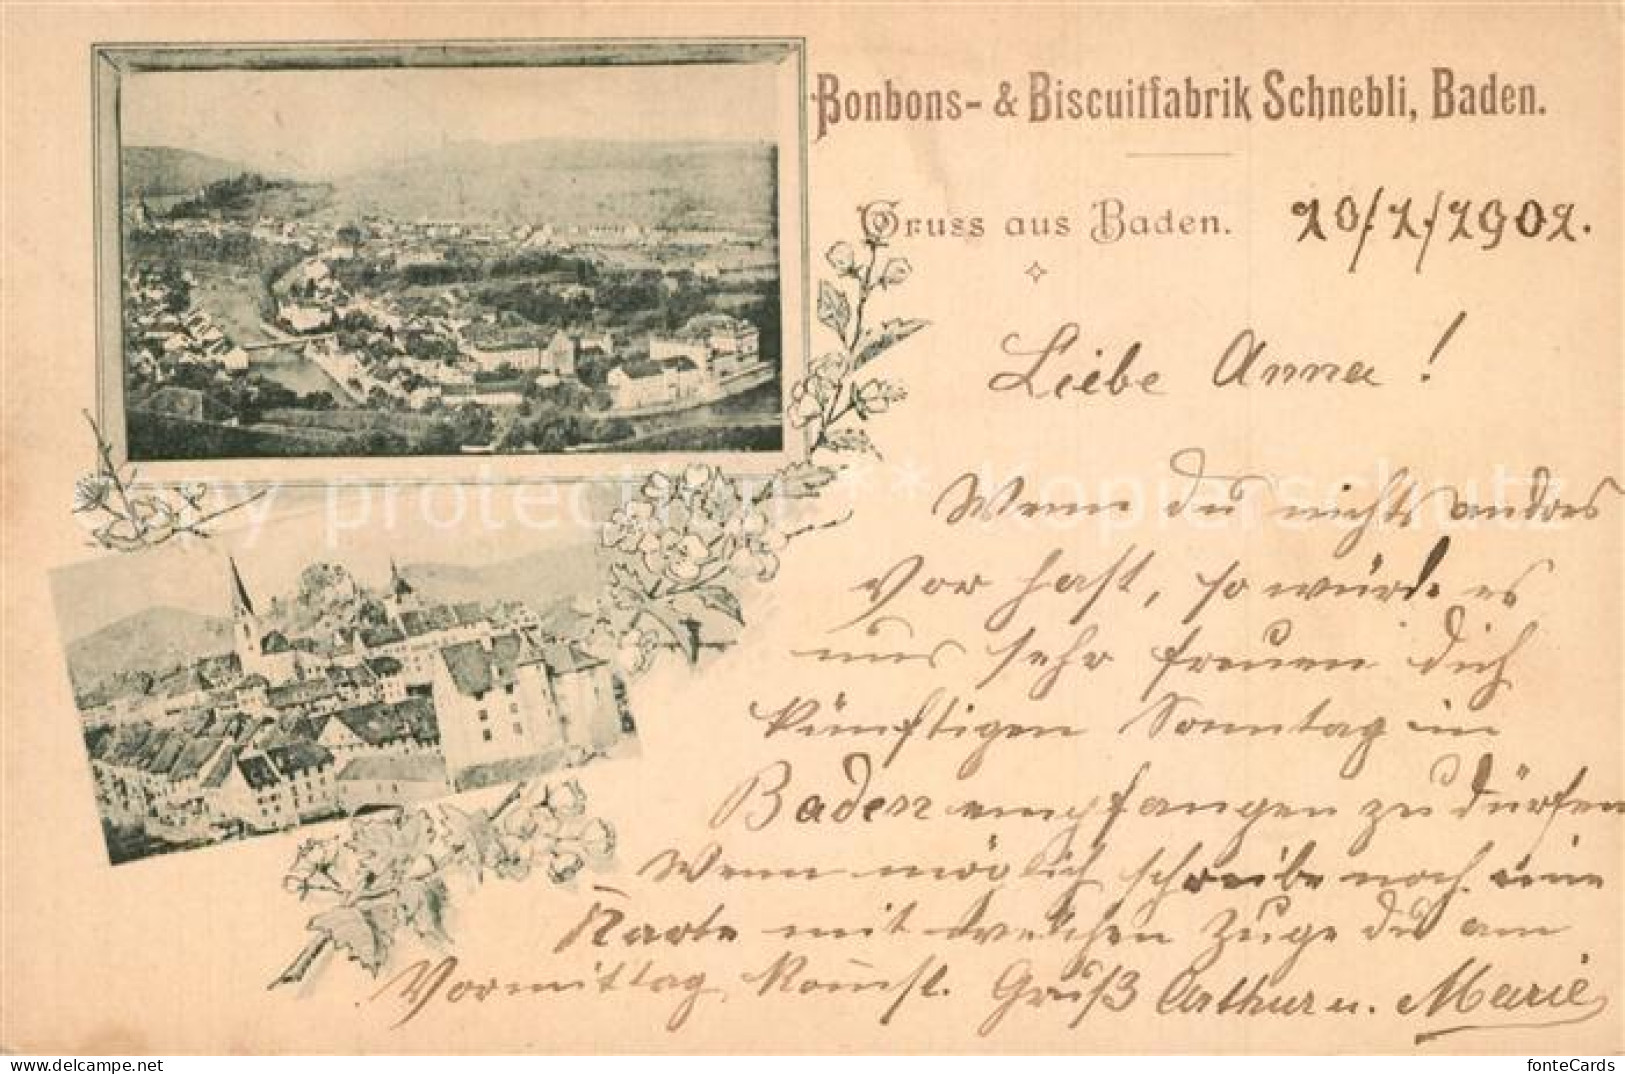 Bonbons- & Biscuitfabrik Schnebli, Baden.
Gruss aus Baden. 20/2./1902.
Liebe Anna!
Wenn du nichts andres
vor hast, so würde es
uns sehr freuen dich
künftigen Sonntag in
Baden empfangen zu dürfen
Wenn möglich schreibe noch eine
Karte mit welchem Zuge du am
Vormittag kömst. Gruß Arthur u. Marie
copy protection ** Kopierschutz
delcampe.net
fonteCards